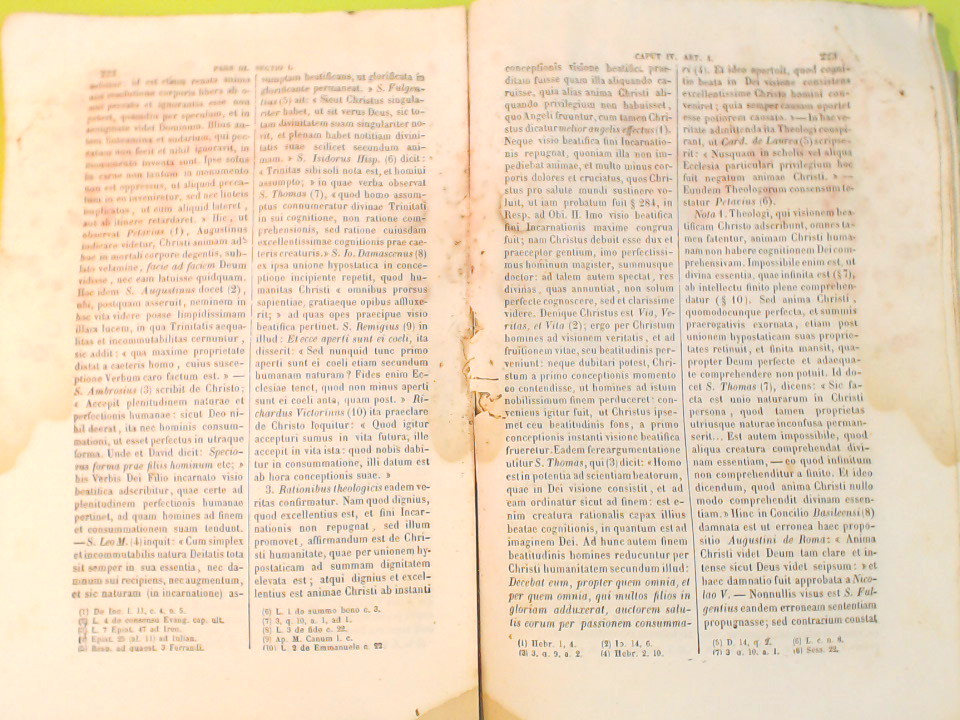 PARS III. SECTIO I.
ut est etiam renata anima
corporis libera ab o-
peccato et ignorantia esse non
potest, quamdiu per speculum, et in
aenigmate videt Dominum. Illius au-
tem linteamina et sudarium, qui pec-
catum non fecit et nihil ignoravit, in
monumento inventa sunt. Ipse solus
in carne non tantum in monumento
non est oppressus, ut aliquid pecca-
tum in eo inveniretur, sed nec linteis
implicatus, ut eum aliquid lateret,
aut ab itinere retardaret. » Hic, ut
observat Petavius (1), Augustinus
indicare videtur, Christi animam adhuc
in mortali corpore degentis, sub-
lato velamine, facie ad faciem Deum
vidisse, nec eam latuisse quidquam.
Hoc idem S. Augustinus docet (2),
ubi, postquam asseruit, neminem in
hac vita videre posse limpidissimam
illam lucem, in qua Trinitatis aequa-
litas et incommutabilitas cernuntur,
sic addit: « qua maxime proprietate
distat a caeteris homo, cuius susce-
ptione Verbum caro factum est. » —
S. Ambrosius (3) scribit de Christo;
« Accepit plenitudinem naturae et
perfectionis humanae: sicut Deo ni-
hil deerat, ita nec hominis consum-
mationi, ut esset perfectus in utraque
forma. Unde et David dicit: Specio-
sus forma prae filiis hominum etc; »
his Verbis Dei Filio incarnato visio
beatifica adscribitur, quae certe ad
plenitudinem perfectionis humanae
pertinet, ad quam homines ad finem
et consummationem suam tendunt.
—S. Leo M. (4) inquit: « Cum simplex
et incommutabilis natura Deitatis tota
sit semper in sua essentia, nec da-
mnum sui recipiens, nec augmentum,
et sic naturam (in incarnatione) as-
(1) De Inc. l. 11, c. 4, n. 5.
(2) L. 4 de consensu Evang. cap. ult.
(3) L. 7 Epist. 47 ad Iren.
(4) Epist. 25 (al. 11) ad Iulian.
(5) Resp. ad quaest. 3 Ferrandi.
sumptam beatificans, ut glorificata in
glorificante permaneat. » S. Fulgen-
tius (5) ait: « Sicut Christus singula-
riter habet, ut sit verus Deus, sic to-
tam divinitatem suam singulariter no-
vit, et plenam habet notitiam divini-
tatis suae scilicet secundum ani-
mam. » S. Isidorus Hisp. (6) dicit:
« Trinitas sibi soli nota est, et homini
assumpto; » in quae verba observat
S. Thomas (7), « quod homo assum-
ptus connumeratur divinae Trinitati
in sui cognitione, non ratione com-
prehensionis, sed ratione cuiusdam
excellentissimae cognitionis prae cae-
teris creaturis. » S. Io. Damascenus (8)
ex ipsa unione hypostatica in conce-
ptione incipiente repetit, quod hu-
manitas Christi « omnibus prorsus
sapientiae, gratiaeque opibus affluxe-
rit; » ad quas opes praecipue visio
beatifica pertinet. S. Remigius (9) in
illud: Et ecce aperti sunt ei coeli, ita
disserit: « Sed nunquid tunc primo
aperti sunt ei coeli etiam secundum
humanam naturam? Fides enim Ec-
clesiae tenet, quod non minus aperti
sunt ei coeli ante, quam post. » Ri-
chardus Victorinus (10) ita praeclare
de Christo loquitur: « Quod igitur
accepturi sumus in vita futura, ille
accepit in vita ista: quod nobis dabi-
tur in consummatione, illi datum est
ab hora conceptionis suae. »
3. Rationibus theologicis eadem ve-
ritas confirmatur. Nam quod dignius,
quod excellentius est, et fini Incar-
nationis non repugnat, sed illum
promovet, affirmandum est de Chri-
sti humanitate, quae per unionem hy-
postaticam ad summam dignitatem
elevata est; atqui dignius et excel-
lentius est animae Christi ab instanti
(6) L. 1 de summo bono c. 3.
(7) 3, q. 10, a. 1, ad 1.
(8) L. 3 de fide c. 22.
(9) Ap. M. Canum l. c.
(10) L. 2 de Emmanuele c. 22.
CAPUT IV. ART. I.
conceptionis visione beatifica prae-
ditam fuisse quam illa aliquando ca-
ruisse, quia alias anima Christi ali-
quando privilegium non habuisset,
quo Angeli fruuntur, cum tamen Chri-
stus dicatur melior angelis effectus (1).
Neque visio beatifica fini Incarnatio-
nis repugnat, quoniam illa non im-
pediebat animae, et multo minus cor-
poris dolores et cruciatus, quos Chri-
stus pro salute mundi sustinere vo-
luit, ut iam probatum fuit § 284, in
Resp. ad Obi. II. Imo visio beatifica
fini Incarnationis maxime congrua
fuit; nam Christus debuit esse dux et
praeceptor gentium, imo perfectissi-
mus hominum magister, summusque
doctor: ad talem autem spectat, res
divinas, quas annuntiat, non solum
perfecte cognoscere, sed et clarissime
videre. Denique Christus est Via, Ve-
ritas, et Vita (2); ergo per Christum
homines ad visionem veritatis, et ad
fruitionem vitae, seu beatitudinis per-
veniunt: neque dubitari potest, Chri-
stum a primo conceptionis momento
eo contendisse, ut homines ad istum
nobilissimum finem perduceret: con-
veniens igitur fuit, ut Christus ipse-
met ceu beatitudinis fons, a primo
conceptionis instanti visione beatifica
frueretur. Eadem fere argumentatione
utitur S. Thomas, qui (3) dicit: «Homo
est in potentia ad scientiam beatorum,
quae in Dei visione consistit, et ad
eam ordinatur sicut ad finem: est e-
nim creatura rationalis capax illius
beatae cognitionis, in quantum est ad
imaginem Dei. Ad hunc autem finem
beatitudinis homines reducuntur per
Christi humanitatem secundum illud:
Decebat eum, propter quem omnia, et
per quem omnia, qui multos filios in
gloriam adduxerat, auctorem salu-
tis eorum per passionem consumma-
(1) Hebr. 1, 4.
(2) Io. 14, 6.
(3) 3, q. 9, a. 2.
(4) Hebr. 2, 10.
ri (4). Et ideo oportuit, quod cogni-
tio beata in Dei visione consistens
excellentissime Christo homini con-
veniret; quia semper causam oportet
esse potiorem causata. »— In hac ve-
ritate admittenda ita Theologi conspi-
rant, ut Card. de Laurea (5) scripse-
rit: « Nusquam in scholis vel aliqua
Ecclesia particulari privilegium hoc
fuit negatum animae Christi. » —
Eundem Theologorum consensum te-
statur Petavius (6).
Nota 1. Theologi, qui visionem bea-
tificam Christo adscribunt, omnes ta-
men fatentur, animam Christi huma-
nam non habere cognitionem Dei com-
prehensivam. Impossibile enim est, ut
divina essentia, quae infinita est (§7),
ab intellectu finito plene comprehen-
datur (§ 10). Sed anima Christi,
quomodocunque perfecta, et summis
praerogativis exornata, etiam post
unionem hypostaticam suas proprie-
tates retinuit, et finita mansit, qua-
propter Deum perfecto et adaequa-
te comprehendere non potuit. Id do-
cet S. Thomas (7), dicens: « Sic fa-
cta est unio naturarum in Christi
persona, quod tamen proprietas
utriusque naturae inconfusa perman-
serit... Est autem impossibile, quod
aliqua creatura comprehendat divi-
nam essentiam, — eo quod infinitum
non comprehenditur a finito. Et ideo
dicendum, quod anima Christi nullo
modo comprehendit divinam essen-
tiam. » Hinc in Concilio Basileensi (8)
damnata est ut erronea haec propo-
sitio Augustini de Roma: « Anima
Christi videt Deum tam clare et in-
tense sicut Deus videt seipsum: » et
haec damnatio fuit approbata a Nico-
lao V. — Nonnullis visus est S. Ful-
gentius eandem erroneam sententiam
propugnasse; sed contrarium constat
(5) D. 14, q 2.
(6) L. c. n. 8.
(7) 3 q. 10, a. 1.
(8) Sess. 22.